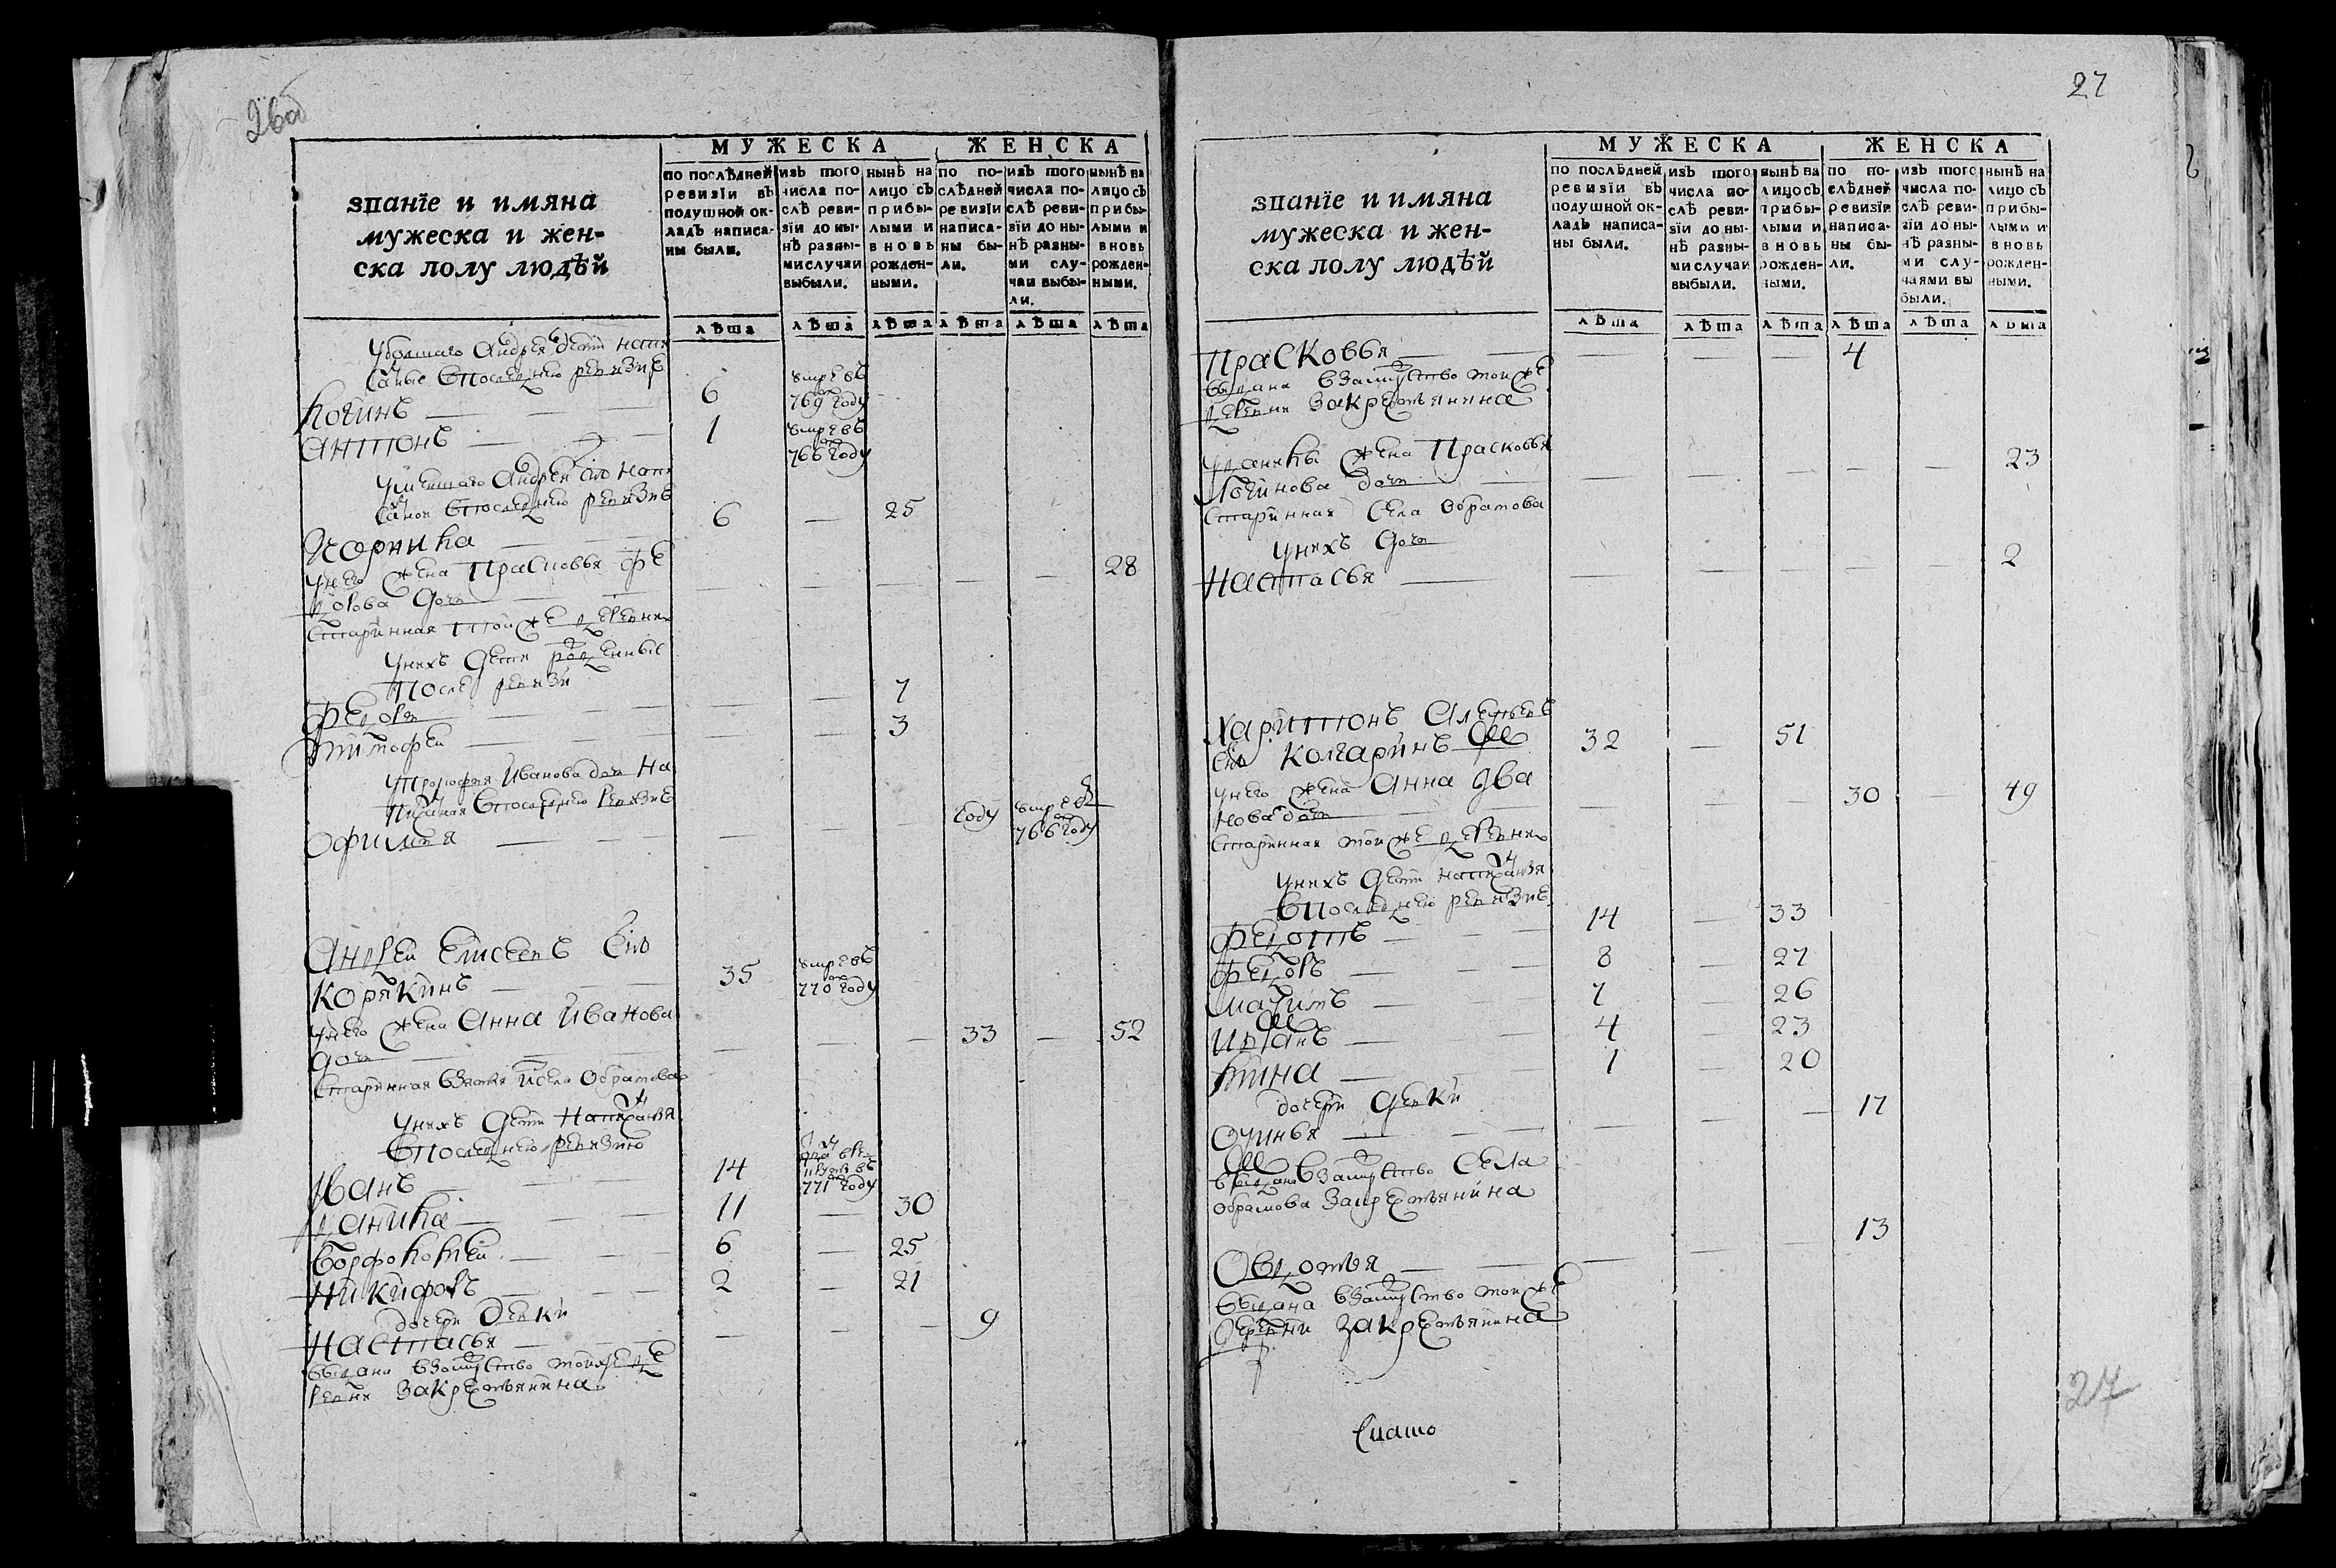 26об
званїе и имяна
мужеска и жен-
ска полу людѣй
МУЖЕСКА
ЖЕНСКА
по послѣдней ревизїи въ подушной окладъ написаны были.
изъ того числа послѣ ревизїи до нынѣ разными случаи выбыли.
нынѣ на лицо съ прибылыми и вновь рожденными.
по послѣдней ревизїи написаны были.
изъ того числа послѣ ревизїи до нынѣ разными случаи выбыли.
нынѣ на лицо съ прибылыми и вновь рожденными.
лѣта лѣта лѣта лѣта лѣта лѣта
у болшаго Андрея дети напи
саные впоследнею ревизиѣ
Логинъ 6 умре въ 769 году
Антонъ 1 умре въ 766 году
у меншаго Андрея сно напи
саной впоследнею ревизиѣ
6 25
у него жена Прасковья фе
дорова дочь 28
старинная той же деревни
у нихъ дети рожденные
после ревизи
Федоръ 7
Тимофеи 3
Иванова дочь на
писаная впоследнею ревизиѣ
Офимья году умре в 766 году
Андреи Елисеевъ снъ
Корякинъ 35 умре въ 770 году
у него жена Анна Иванова
дочь 33 52
старинная взятая исела Обратова
у нихъ дети написаныя
впоследнею ревизию
Иванъ 14 отданъ в рекруты въ 771 году
Данила 11 30
Ворфоломей 6 25
Никифоръ 2 21
дочери девки
Настасья 9
выдана взамужство тойже де
ревни закрестьянина
27
званїе и имяна
мужеска и жен-
ска полу людѣй
МУЖЕСКА
ЖЕНСКА
по послѣдней ревизїи въ подушной окладъ написаны были.
изъ того числа послѣ ревизїи до нынѣ разными случаи выбыли.
нынѣ на лицо съ прибылыми и вновь рожденными.
по послѣдней ревизїи написаны были.
изъ того числа послѣ ревизїи до нынѣ разными случаями выбыли.
нынѣ на лицо съ прибылыми и вновь рожденными.
лѣта лѣта лѣта лѣта лѣта лѣта
Прасковья 4
выдана взамужство тойже
деревни закрестьянина
у Данилы жена Прасковья 23
Логинова дочь
старинная села Обратова
у нихъ дочь
Настасья 2
Харитонъ
снъ Колгаринъ 32 51
у него жена Анна Ива
нова дочь 30 49
старинная той же деревни
у нихъ дети написаныя
впоследнею ревизиѣ
Федотъ 14 33
Федоръ 8 27
Мазимъ 7 26
Иванъ 4 23
1 20
дочери девки
17
выдана взамужство села
Обратова закрестьянина
Овдотья 13
выдана взамужство тойже
деревни закрестьянина
27